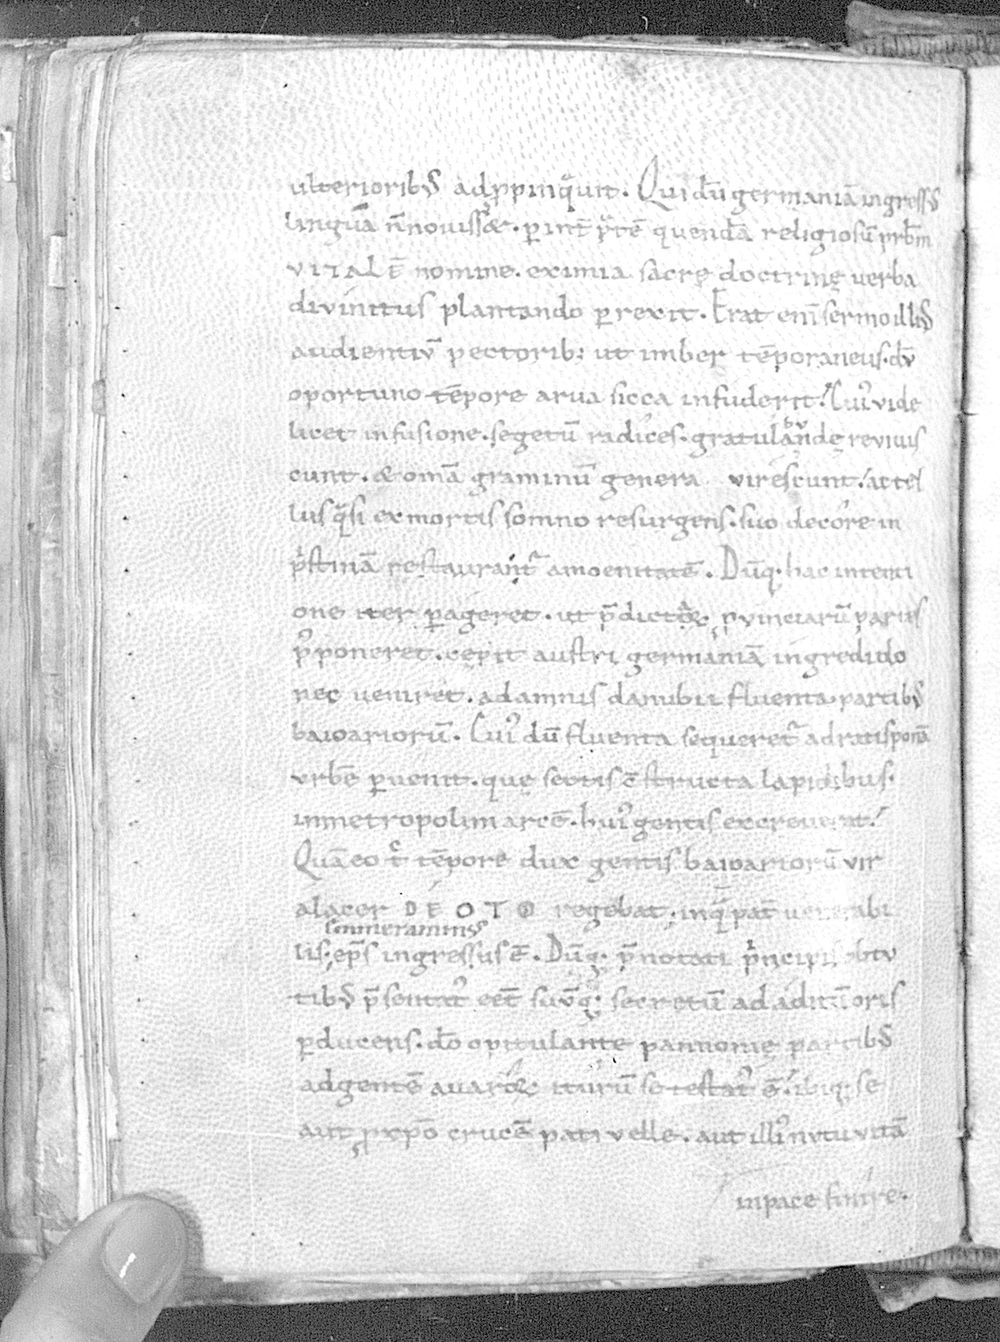 ulterioribꝰ adꝓpinq̊uit. Qui dū germaniā ingressꝰ
linguā n̄ nouissꝫ &. ꝑ int̄ p̄tē quendā religiosū prb̄m
VITALĒ nomine. eximia sacrę doctrinę uerba
diuinitus plantando ꝑrexit. Erat eni̅ sermo illiꝰ
audientiū pectorib; ut imber tēporaneus. dū
oportuno tēpore arua sicca infuderit. Cuiꝰ uide
licet infusione. segetū radices. gratulabundę reuiuis
cunt. & omā graminū genera virescunt. ac tel
lus q̊si ex mortis somno resurgens. suo decore in
p̍stinā restaurant᷑ amoenitatē. Dūq; hac intenti
one iter ꝑageret. ut p̄dictaꝝ ꝓuinciarū partes
p̍poneret. cępit austri germaniā ingredi do
nec ueniret. ad amnis danubii fluenta partibꝰ
baioariorū. Cuiꝰ dū fluenta sequeret᷑ ad ratisponā
vrbē ꝑuenit. quę sectis ē structa lapidibus.
in metropolim arcē. huiꝰ gentis excreuerat.
Quā eo t̄ tēpore dux gentis baioariorū vir
alacer DEOTO regebat. in q̄ pat̄ uenerabi
emmerammꝰ
lis. ep̄s ingressus ē. Dūq; p̄notati p̍ncipis obtu
tibꝰ p̄sentatꝰ eēt suūq; secretū ad aditū oris
ꝑducens. dō opitulante pannonię partibꝰ
ad gentē auaroꝝ iturū se testatꝰ ē. ibiq; se
aut ꝓ xp̄o crucē pati velle. aut illiꝰ nutu uitā
in pace finire.